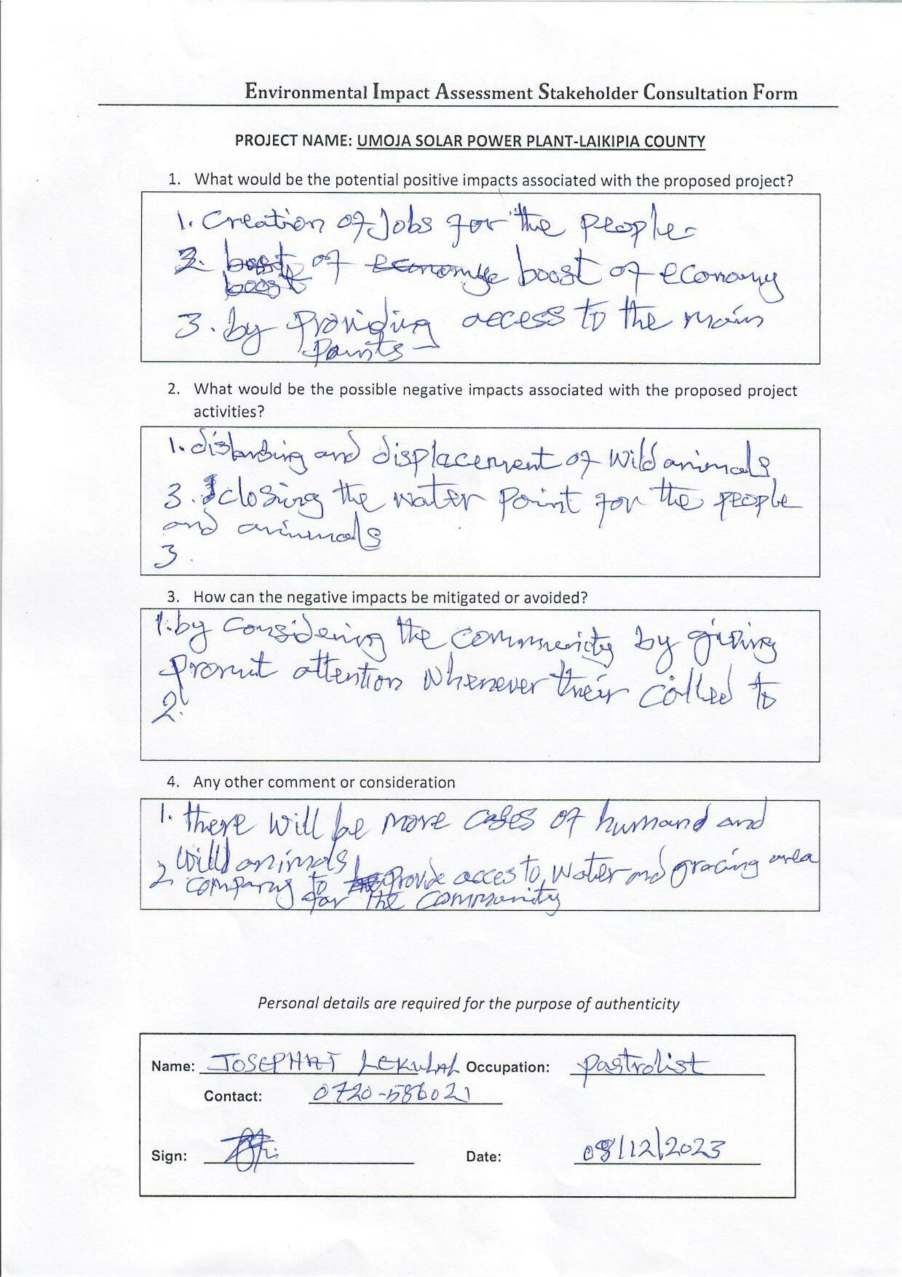 Environmental Impact Assessment Stakeholder Consultation Form
PROJECT NAME: UMOJA SOLAR POWER PLANT-LAIKIPIA COUNTY
1. What would be the potential positive impacts associated with the proposed project?
1. Creation of Jobs for the people
2. boost of economy boost of economy
boost
3. by providing access to the main
points
2. What would be the possible negative impacts associated with the proposed project
activities?
1. distarbing and displacement of Wild animals
3. closing the water point for the people
and animals
3.
3. How can the negative impacts be mitigated or avoided?
1. by considering the community by giving
promt attention whenever their called to
2.
4. Any other comment or consideration
1. there will be more cases of humand and
wild animals
2 company to provide acces to, water and gracing area
for the community
Personal details are required for the purpose of authenticity
Name: JOSEPHAT LEKULAL Occupation: pastrolist
Contact: 0720-586021
Sign: Date: 08/12/2023